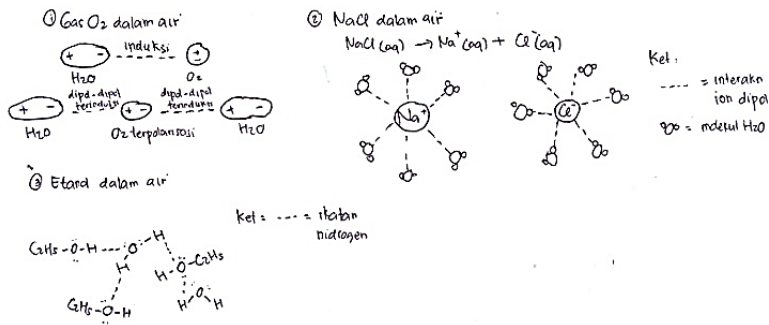 ① Gas O2 dalam air
+ - induksi ±
H2O O2
dipol-dipol terinduksi dipol-dipol terinduksi
+ - + - + -
H2O O2 terpolarisasi H2O
② NaCl dalam air
NaCl (aq) → Na+(aq) + Cl-(aq)
Na+ Cl-
Ket:
---- = interaksi
ion dipol
= molekul H2O
③ Etanol dalam air
Ket: --- = ikatan
hidrogen
C2H5-O-H---O-H
H H-O-C2H5
C2H5-O-H H O H